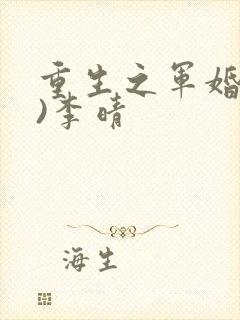 重生之军婚
)李晴
海生